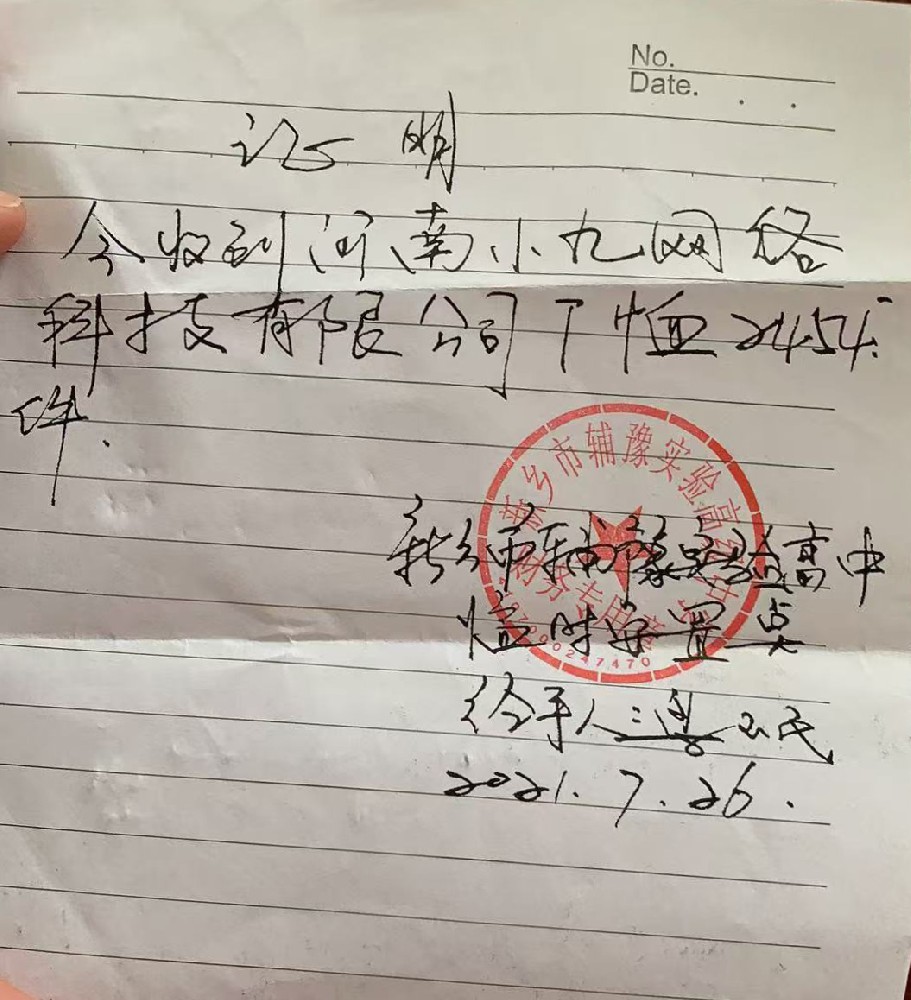 No.
Date.
证明
今收到河南小九网络
科技有限公司T恤2454
件.
新乡市辅豫实验高中
新乡市辅豫实验高级中
财务专用章
00247470
临时安置点
经手人:道
2021.7.26.